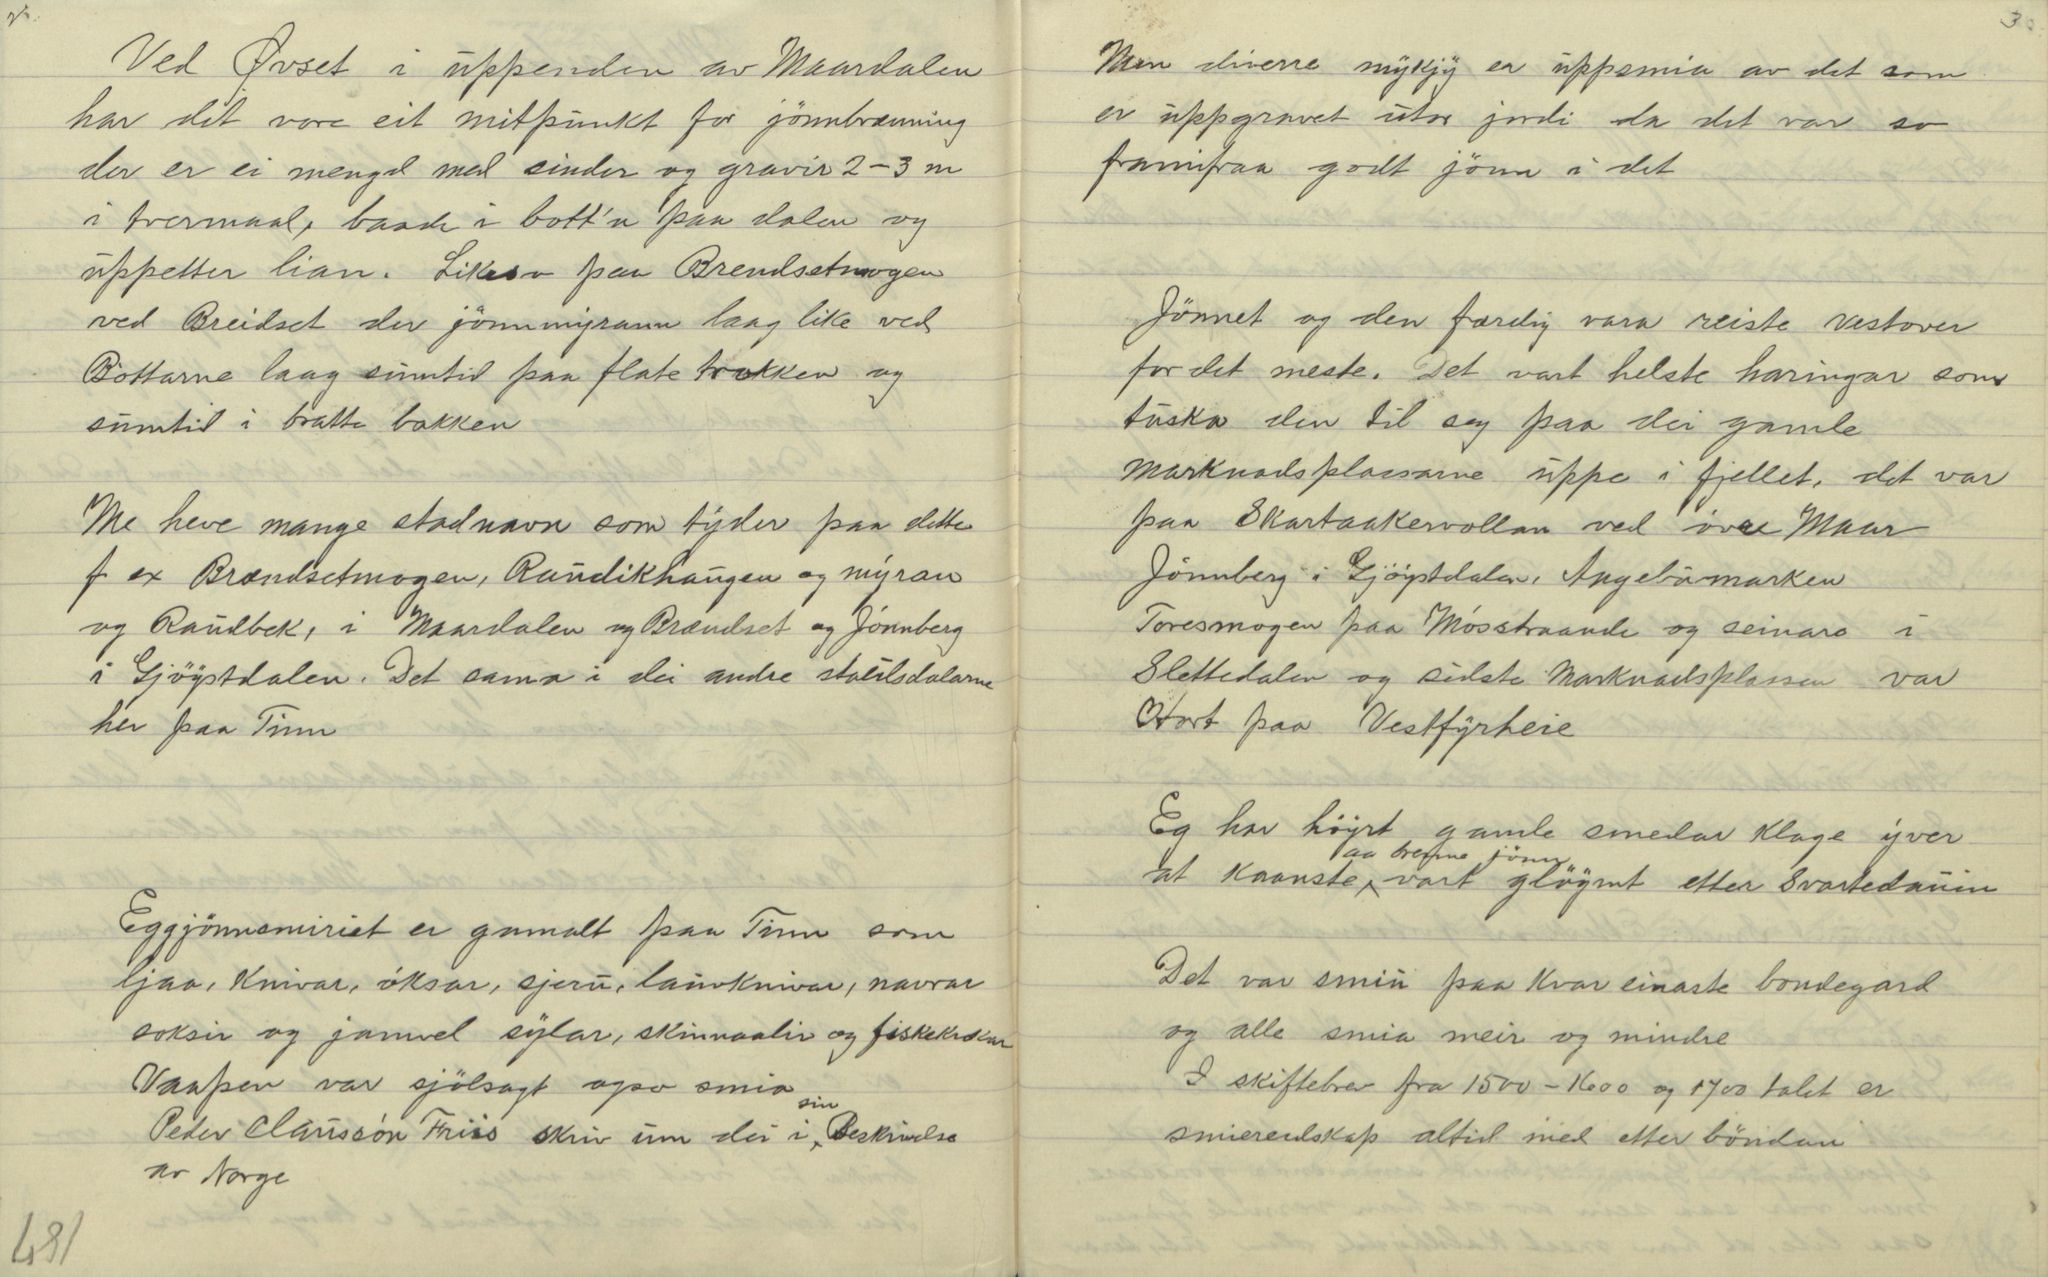 2.
Ved Øvset i uppenden av Maardalen
har dit vore eit mitpunkt for jönnbrænning
der er ei mengd med sinder og gravir 2-3 m
i tvermaal, baade i bott'n paa dalen og
uppetter lian. Likeso paa Brendsetmogen
ved Breidset der jönnmyrann laag like ved
Böttarne laag sumtid paa flate trokken og
sumtid i bratte bakken
Me heve mange stadnavn som tyder paa dette
f ex Brændsetmogen, Raudikhaugen og myran
og Raudbek, i Maardalen og Brændset og Jönnberg
i Gjöystdalen. Det sama i dei andre staulsdalarne
her paa Tinn
Eggjönnsmiriet er gamalt paa Tinn som
ljaa, knivar, öksar, sjeru, lauvknivar, navrar
soksir og jamvel sylar, skinnaalir og fiskekrokar
Vaapen var sjölsagt ogso smia
sin
Peder Claussón Friis skriv um dei i Beskrivelse
av Norge
181
3
Men diverre mykjy er uppsmia av det som
er uppgravet utor jordi da det var so
framifraa godt jönn i det
Jönnet og den færdig vara reiste vestover
for det meste. Det vart helste haringar som
tuska den til seg paa dei gamle
marknadsplassarne uppe i fjellet, det var
paa Skartaakervollan ved övre Maar
Jönnberg i Gjöystdalen, Angebumarken
Toresmogen paa Mósstraande og seinare i
Slettedalen og sidste marknadsplassen var
Hart paa Vestfyrheie
Eg har höyrt gamle smedar klage yver
aa brenne jönn
at kaanste vart glöymt etter Svartedauin
Det var smiu paa kvar einaste bondegard
og alle smia meir og mindre
I skiftebrev fra 1500-1600 og 1700 talet er
smiereidskap altid med etter böndan